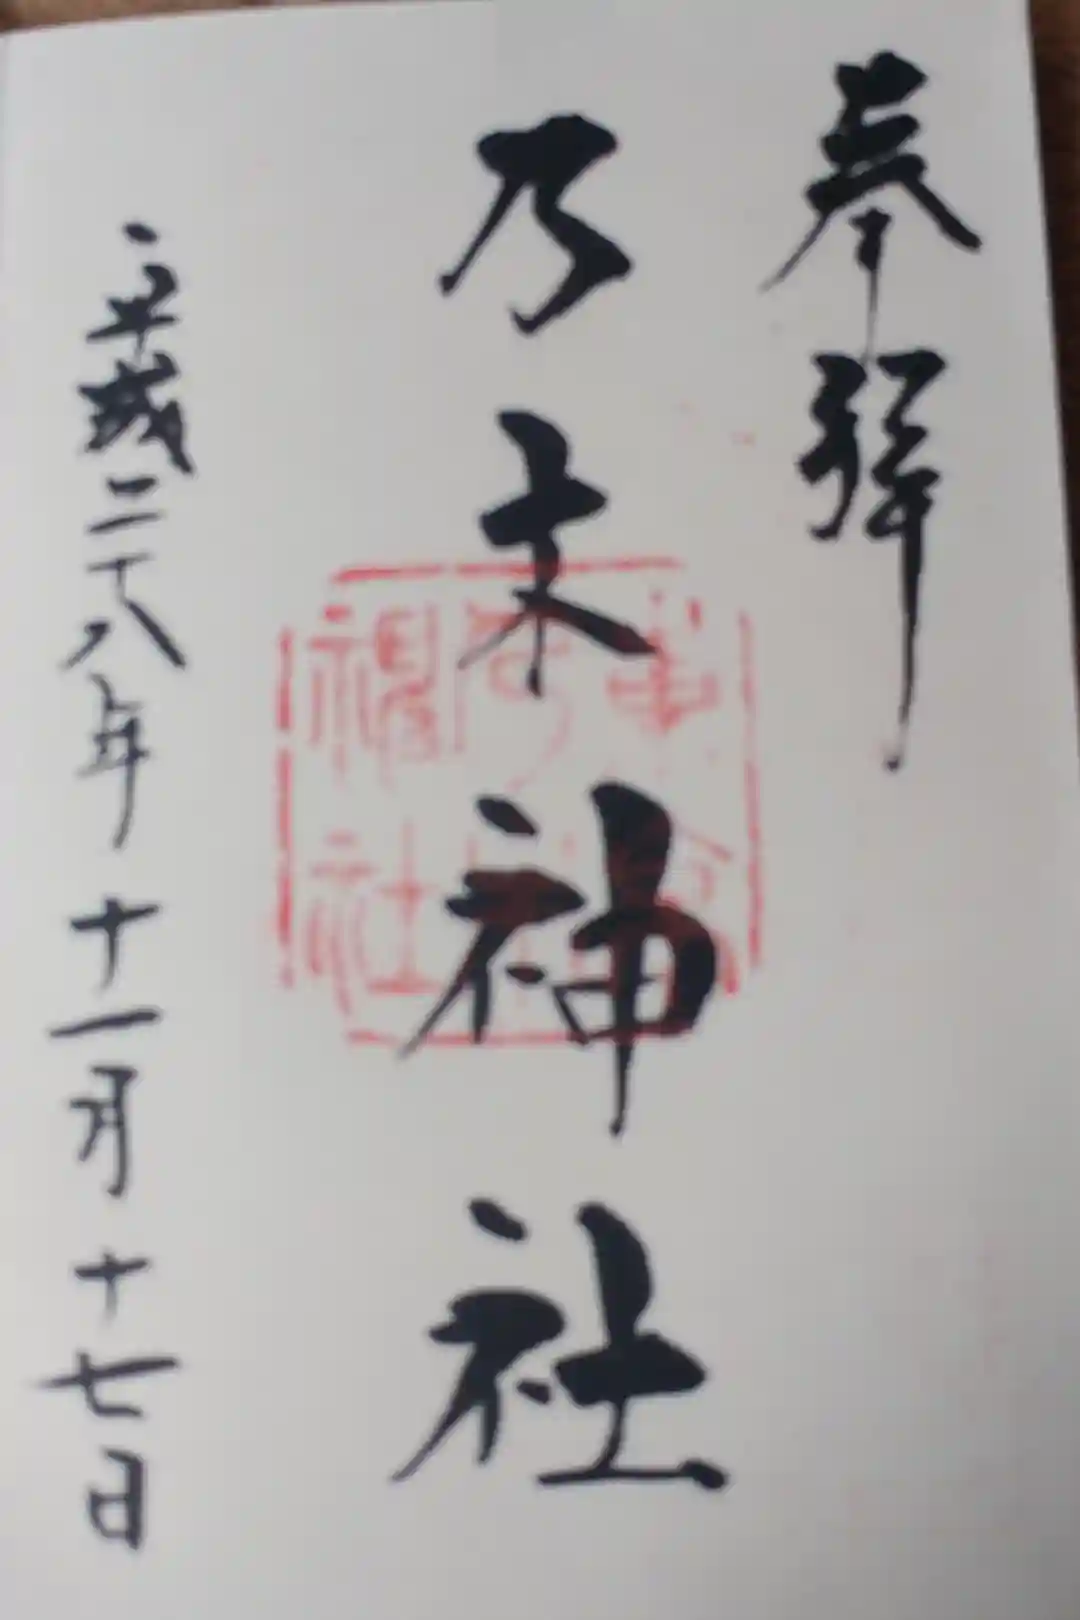 奉拝
乃木神社
平成二十八年十一月十七日